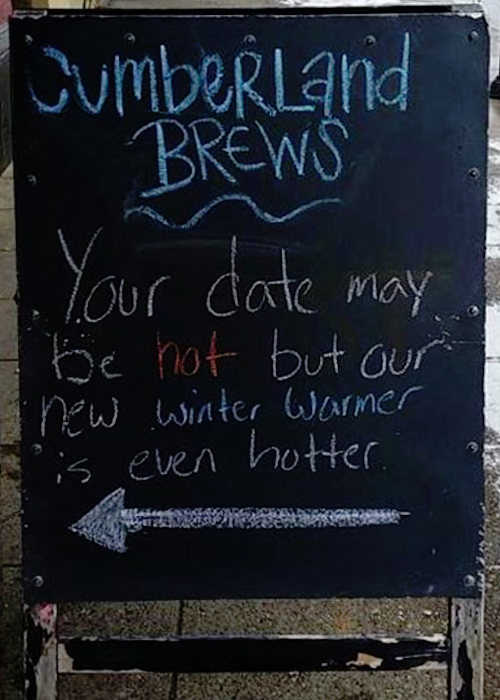 Cumberland
BREWS
Your date may
be hot but our
new winter warmer
is even hotter.